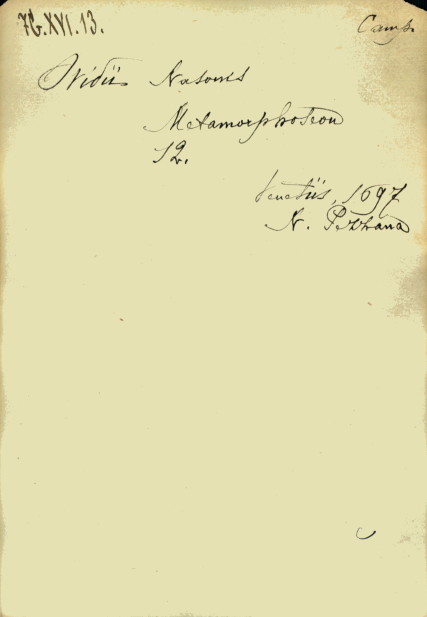 7G.XVI.13.
Camp.
Ovidii Nasonis
Metamorphoseon
12.
Venetiis, 1697
N. Pezzana